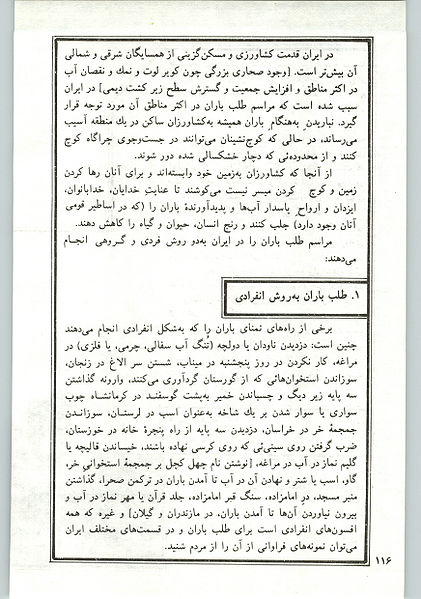 در ایران قدمت کشاورزی و مسکن‌گزینی از همسایگان شرقی و شمالی
آن بیش‌تر است. [وجود صحاری بزرگی چون کویر لوت و نمك و نقصان آب
در اکثر مناطق و افزایش جمعیت و گسترش سطح زیر کشت دیمی] در ایران
سبب شده است که مراسم طلب باران در اکثر مناطق آن مورد توجه قرار
گیرد. نباریدنِ به‌هنگامِ باران همیشه به‌کشاورزان ساکن در یك منطقه آسیب
می‌رساند، در حالی که کوچ‌نشینان می‌توانند در جست‌وجوی چراگاه کوچ
کنند و از محدوده‌ئی که دچار خشکسالی شده دور شوند.
از آنجا که کشاورزان به‌زمین خود وابسته‌اند و برای آنان رها کردن
زمین و کوچ کردن میسر نیست می‌کوشند تا عنایتِ خدایان، خدابانوان،
ایزدان و ارواحِ پاسدار آب‌ها و پدیدآورندهٔ باران را (که در اساطیر قومی
آنان وجود دارد) جلب کنند و رنج انسان، حیوان و گیاه را کاهش دهند.
مراسم طلب باران را در ایران به‌دو روش فردی و گروهی انجام
می‌دهند:
۱. طلب باران به‌روش انفرادی
برخی از راه‌های تمنای باران را که به‌شکل انفرادی انجام می‌دهند
چنین است: دزدیدن ناودان یا دولچه (تُنگ آب سفالی، چرمی، یا فلزی) در
مراغه، کار نکردن در روز پنجشنبه در میناب، شستن سر الاغ در زنجان،
سوزاندن استخوان‌هائی که از گورستان گردآوری می‌کنند، وارونه گذاشتن
سه پایه زیر دیگ و چسباندن خمیر به‌پشت گوسفند در کرمانشاه چوب
سواری یا سوار شدن بر یك شاخه به‌عنوان اسب در لرستان، سوزاندن
جمجمهٔ خر در خراسان، دزدیدن سه پایه از راه پنجرهٔ خانه در خوزستان،
ضرب گرفتن روی سینی‌ئی که روی کرسی نهاده باشند، خیساندن قالیچه یا
گلیم نماز در آب در مراغه، [نوشتن نام چهل کچل بر جمجمهٔ استخوانی خر،
گاو، اسب یا شتر و نهادن آن در آب تا آمدن باران در ترکمن صحرا، گذاشتن
منبر مسجد، در امامزاده، سنگ قبر امامزاده، جلد قرآن یا مهر نماز در آب و
بیرون نیاوردن آن‌ها تا آمدن باران، در مازندران و گیلان] و غیره که همه
افسون‌های انفرادی است برای طلب باران و در قسمت‌های مختلف ایران
می‌توان نمونه‌های فراوانی از آن را از مردم شنید.
۱۱۶